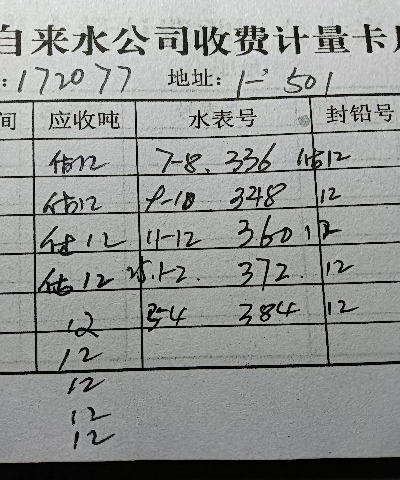 自来水公司收费计量卡
:172077 地址: 1-501
间 应收吨 水表号 封铅号
估12 7-8. 336 估12
估12 9-10 348 12
估12 11-12 360 12
估12 25.1-2. 372. 12
12 3-4 384 12
12
12
12
12